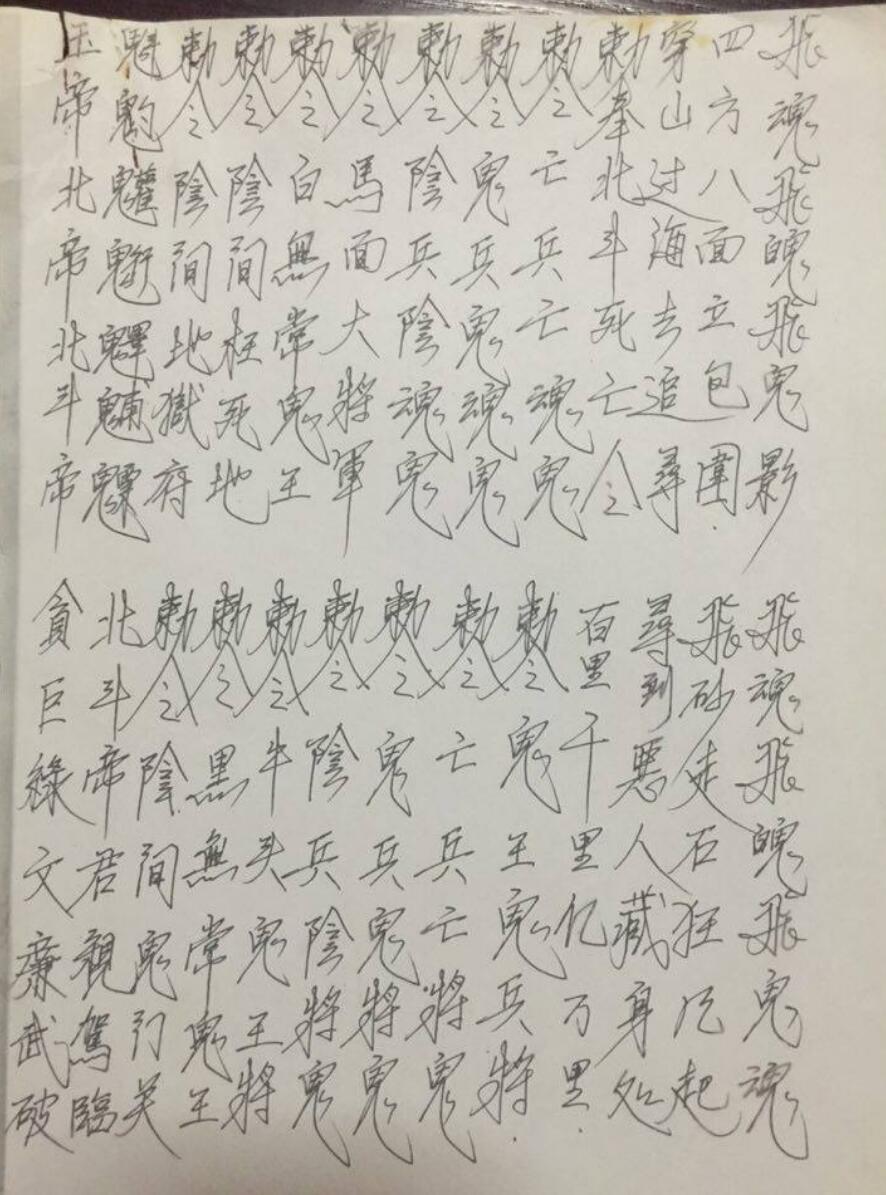 玉帝北帝北斗帝
貪巨綠文廉武破
魁魓魒
北斗帝君親駕臨
勅令陰間地獄府
勅令陰間鬼门关
勅令陰間枉死地
勅令黑無常鬼王
勅令白無常鬼王
勅令牛头鬼王將
勅令馬面大將軍
勅令陰兵陰將鬼
勅令陰兵陰魂鬼
勅令鬼兵鬼將鬼
勅令鬼兵鬼魂鬼
勅令亡兵亡將鬼
勅令亡兵亡魂鬼
勅令鬼王鬼兵將.
勅奉北斗死亡令
百里千里亿万里.
穿山过海去追尋
尋到惡人藏身处
四方八面立包圍.
飛砂走石狂风起
飛魂飛魄飛鬼影
飛魂飛魄飛鬼魂